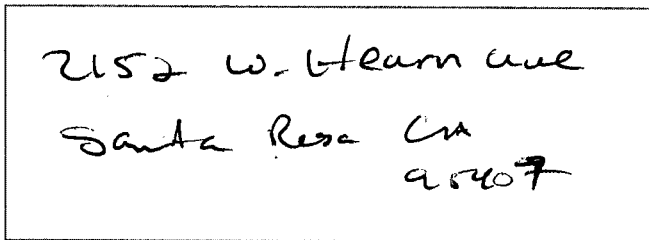 2152 W. Hearn Ave
Santa Rosa CA
95407